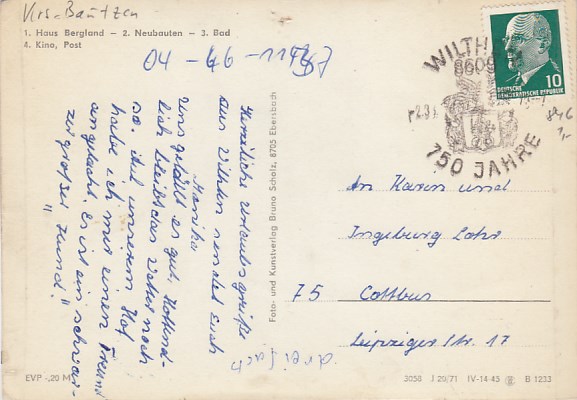 Krs. Bautzen
1. Haus Bergland — 2. Neubauten — 3. Bad
4. Kino, Post
04 - 46 - 11
WILTHEN
8609
10
DEUTSCHE
DEMOKRATISCHE REPUBLIK
750 JAHRE
Herzliche Urlaubsgrüße
aus Wilthen sendet Euch
Monika
uns gefällt es gut. Hoffent-
lich bleibt das Wetter noch
so. Auf unserem Hof
habe ich mir einen Freund
angelacht. Es ist ein schwar-
zer großer "Hund".
Foto- und Kunstverlag Bruno Scholz, 8705 Ebersbach
An Karen und
Ingeburg Lahr
75 Cottbus
Leipziger Str. 17
dreifach
EVP -,20 M
3058 J 20/71 IV-14-45 B 1233